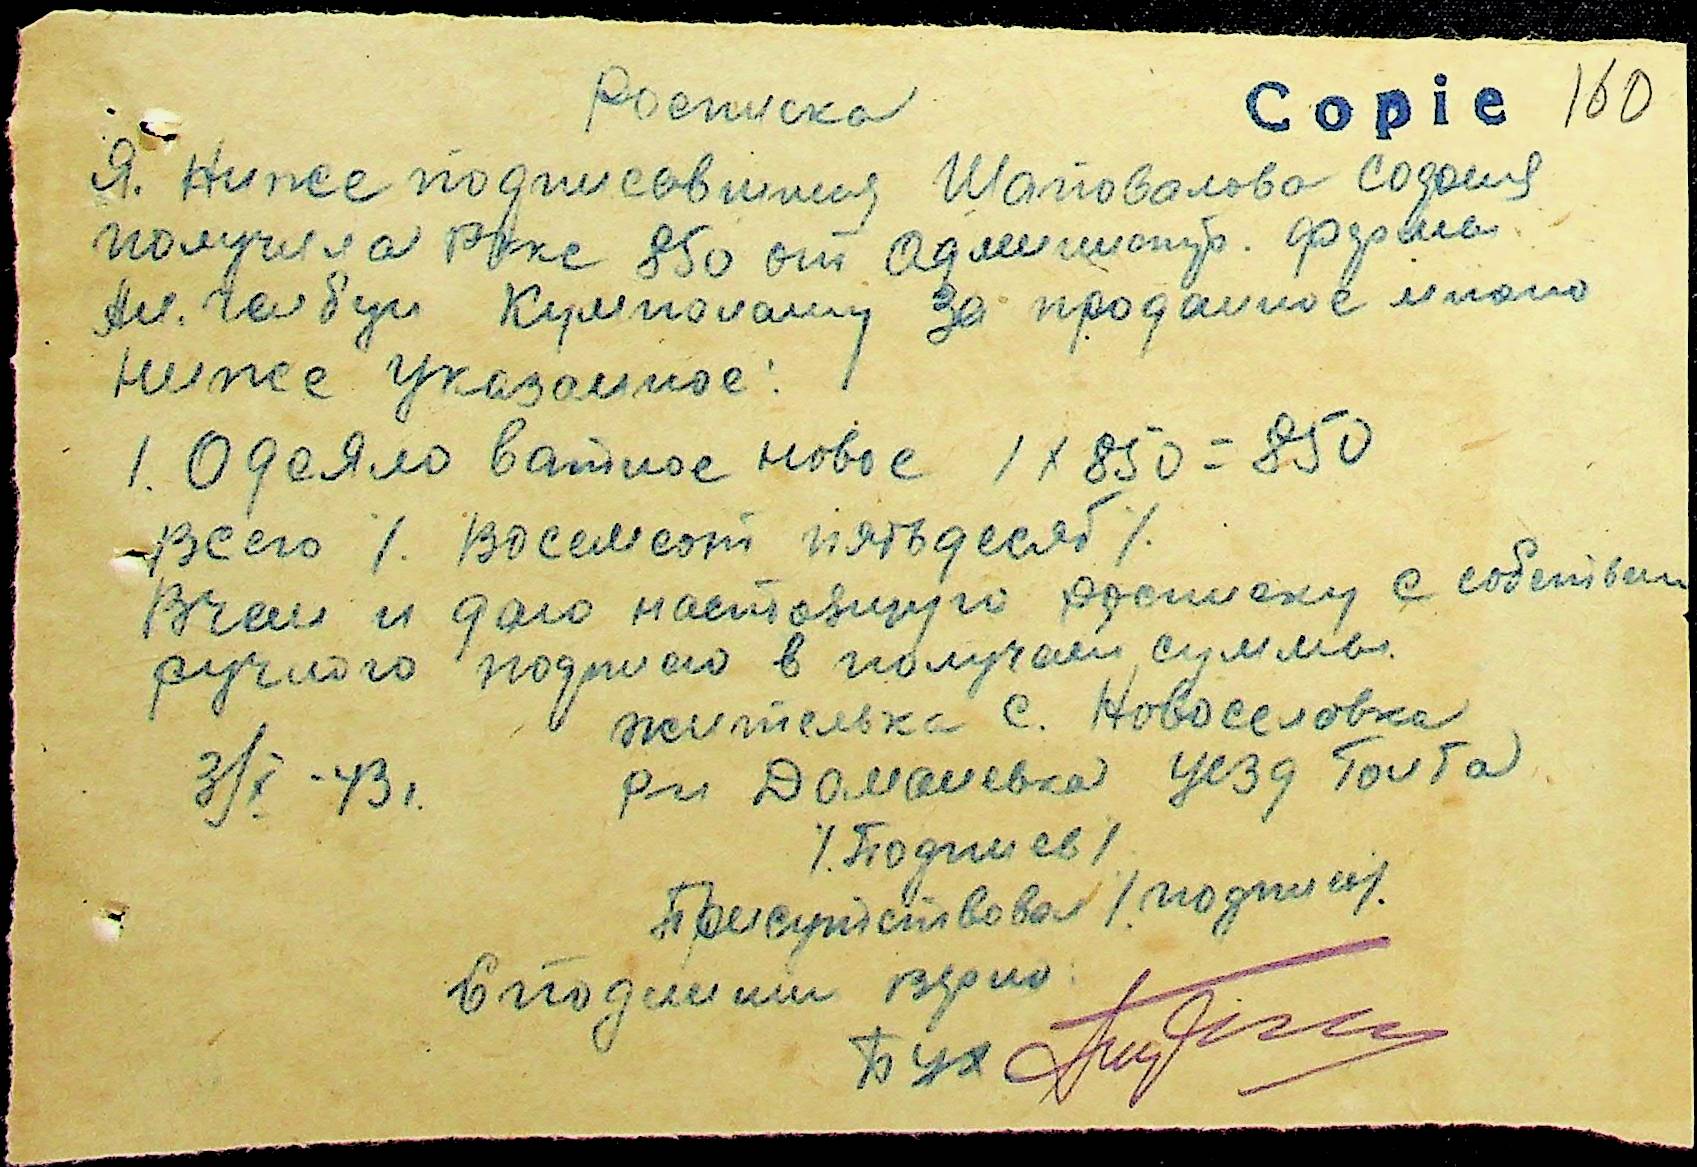 Росписка
Copie 160
Я. Ниже подписавшия Шаповалова София
получила РККС 850 от Администр. фермы
Ал. Чебун Кумполану за проданное мною
ниже указанное:
1. Одеяло ватное новое 1 х 850 = 850
Всего /. Восемсот пятьдесят /.
Вчем и даю настоящую росписку с собствен
ручного подписю в получен суммы.
жителька с. Новоселовка
3/X - 43 г. р-н Доманевка уезд Голта
/. Подпись /
Присутствовал /. подпись /.
С подлиним верно:
Бух